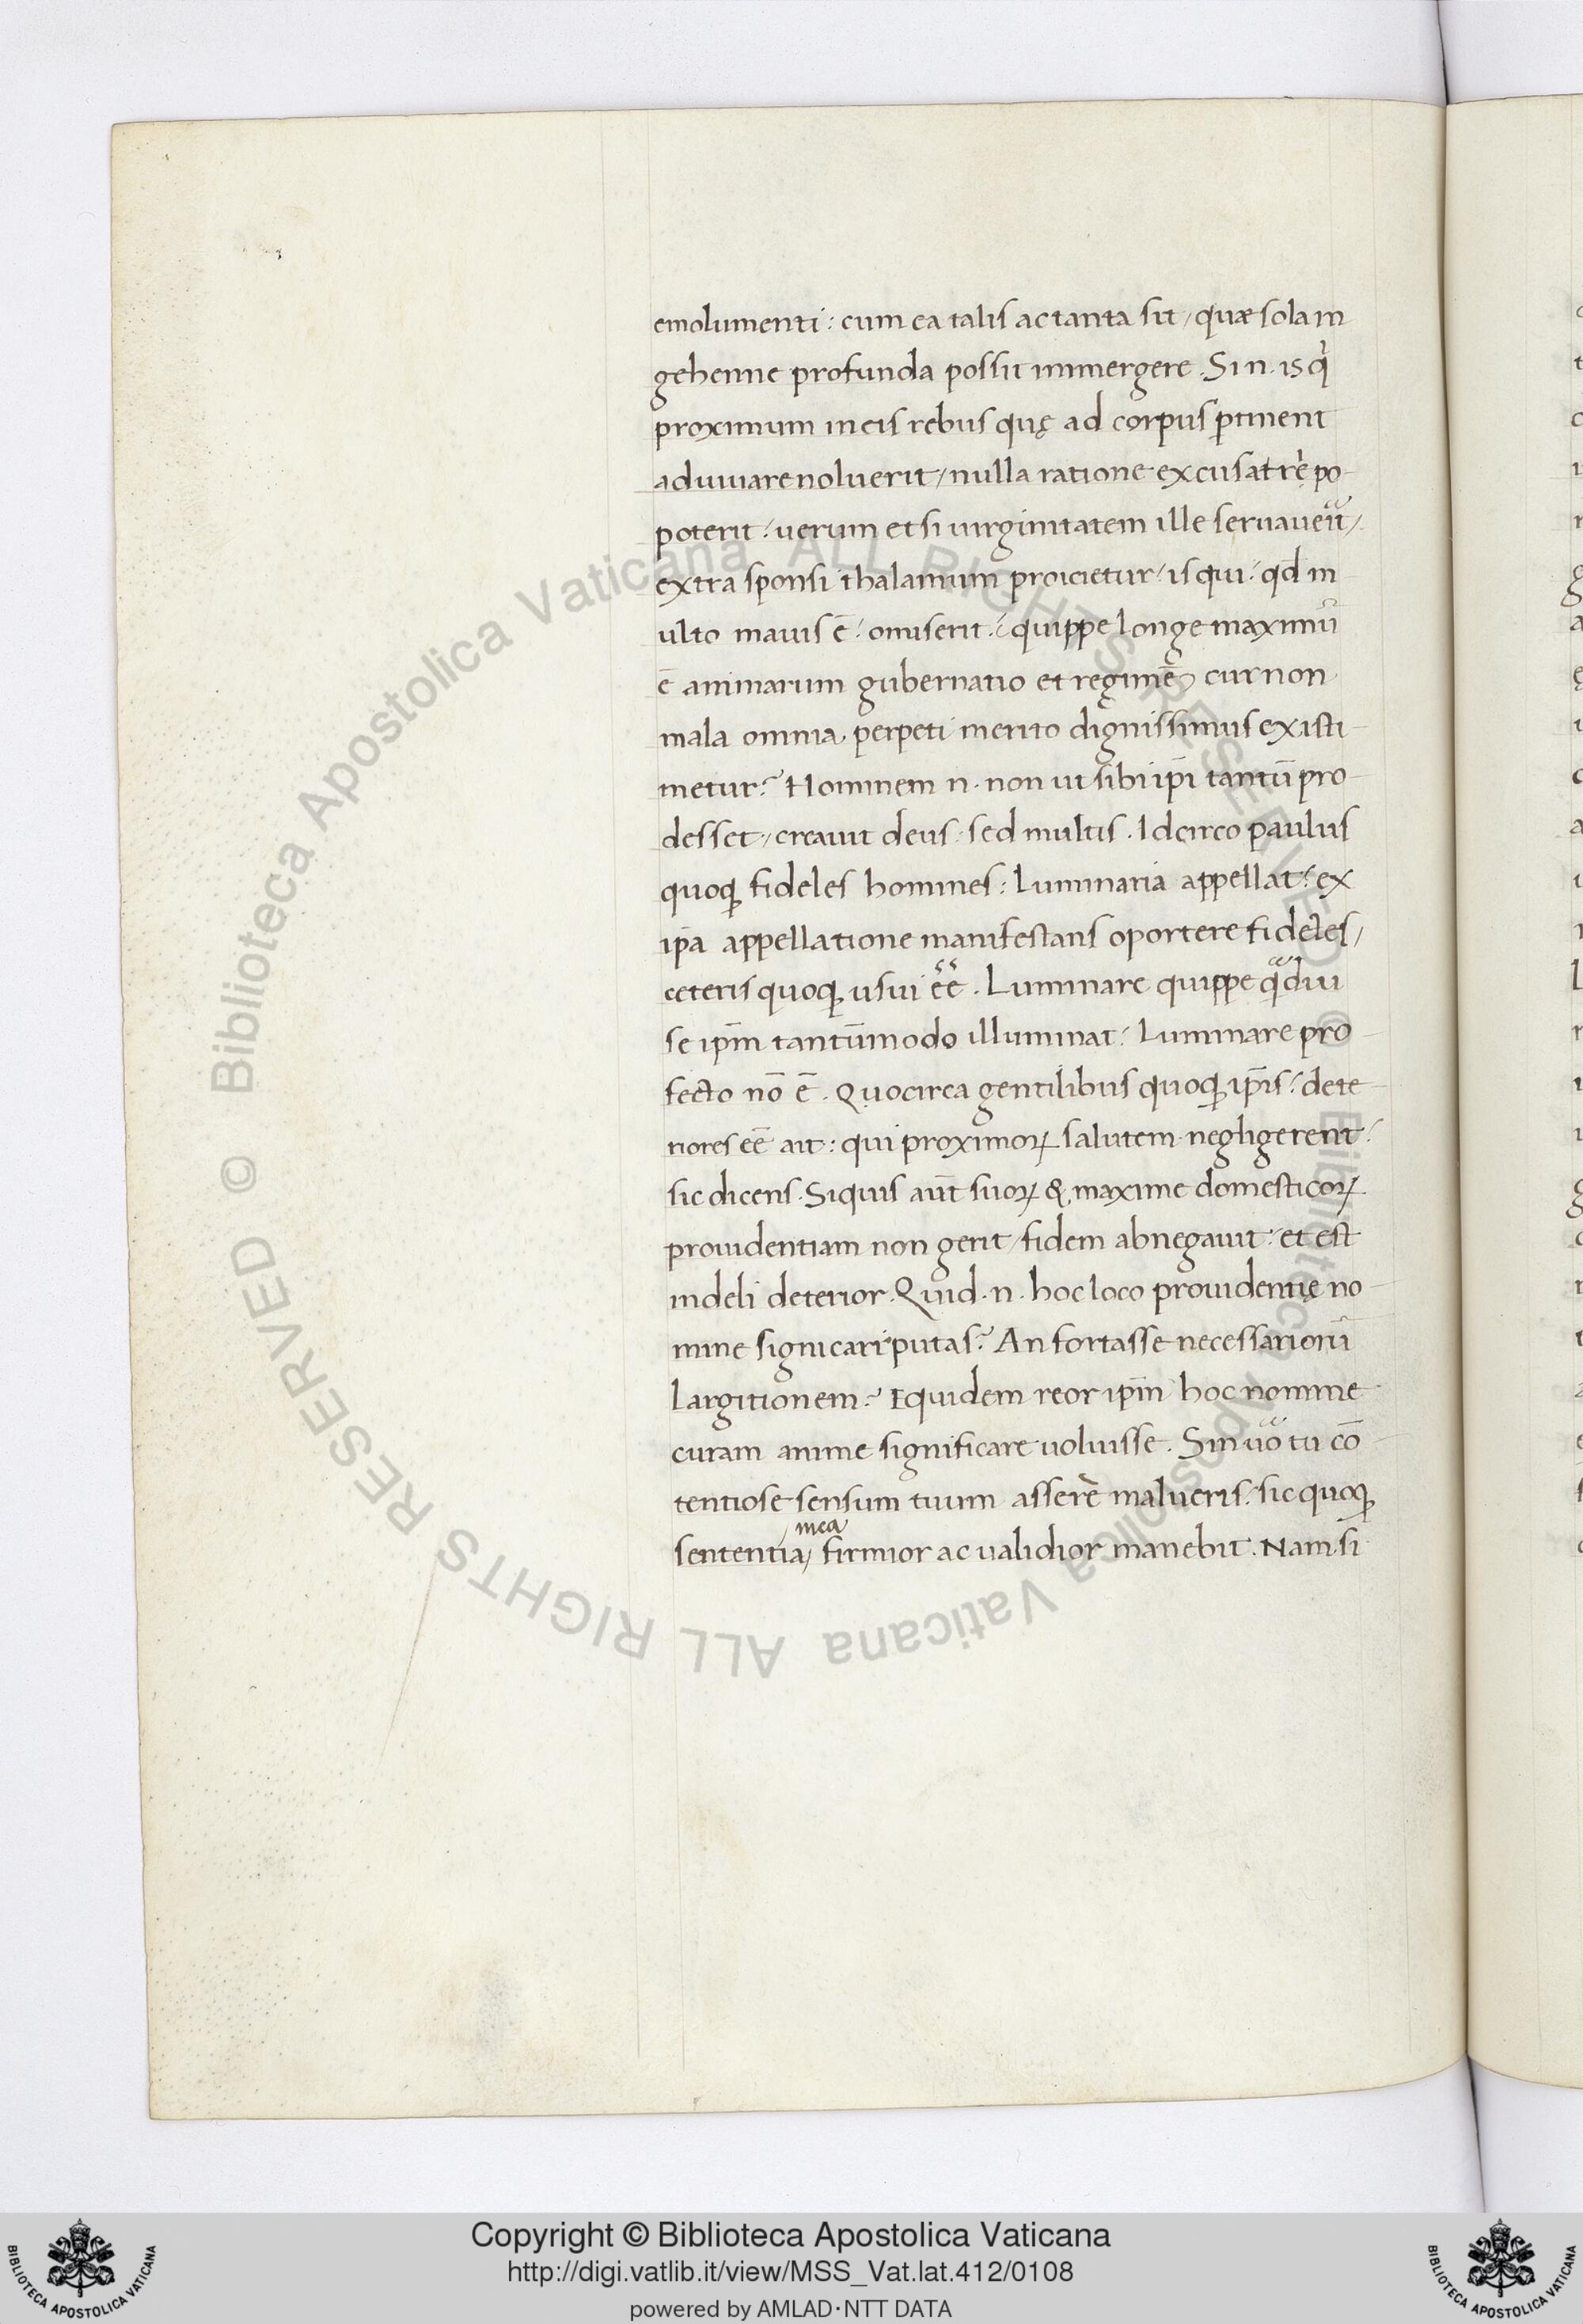 emolumenti: cum ea talis ac tanta sit, quæ sola in
gehenne profunda possit immergere. Si n. is qͥ
proximum in eis rebus quę ad corpus ꝑtinent
aduuiare noluerit, nulla ratione excusat rè po-
poterit: uerum et si uirginitatem ille seruaueͣıt,
extra sponsi thalamum proicietur: is qui: qd̄ m
ulto maius ē: omiserit: quippe longe maximū
ē animarum gubernatio et regimē, cur non
mala omnia, perpeti merito dignissimus existi-
metur? Hominem n. non ut sibi ip̄i tantū pro-
desset, creauit deus: sed multis. Idcirco paulus
quoqꝫ fideles homines: luminaria appellat: ex
ip̄a appellatione manifestans oportere fideles,
ceteris quoqꝫ usui ēē. Luminare quippe qͣdiu
se ip̄m tantūmodo illuminat: luminare pro-
fecto nō ē. Quocirca gentilibus quoqꝫ ip̄is: dete-
riores eē ait: qui proximoꝝ salutem negligerent:
sic dicens. Siquis aūt suoꝝ & maxime domesticoꝝ
prouidentiam non gerit, fidem abnegauit: et est
indeli deterior. Quid. n. hoc loco prouidentię no-
mine signicari putas? An fortasse necessariorū
largitionem? Equidem reor ip̄m hoc nomine
curam anime significare uoluisse. Sin uͦo tu cō-
tentiose sensum tuum asserè malueris: sic quoqꝫ
mea
sententia, firmior ac ualidior manebit. Nam si
© Biblioteca Apostolica Vaticana ALL RIGHTS RESERVED
© Biblioteca Apostolica Vaticana ALL RIGHTS RESERVED
Copyright © Biblioteca Apostolica Vaticana
http://digi.vatlib.it/view/MSS_Vat.lat.412/0108
powered by AMLAD·NTT DATA
BIBLIOTECA APOSTOLICA VATICANA
BIBLIOTECA APOSTOLICA VATICANA